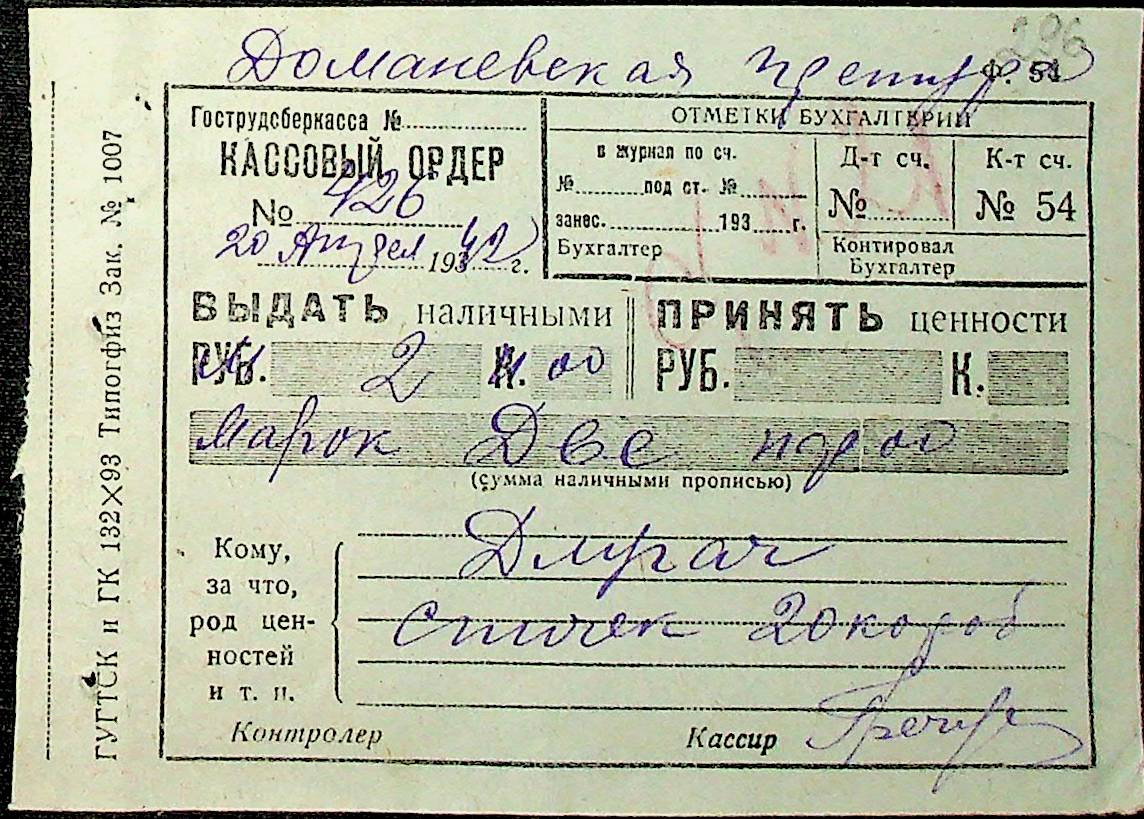 296
Доманевская претура
Ф. 54
Гострудсберкасса №
КАССОВЫЙ ОРДЕР
№ 426
20 Апрел 1942 г.
ОТМЕТКИ БУХГАЛТЕРИИ
в журнал по сч.
№ под ст. №
занес. 193 г.
Бухгалтер
Д-т сч.
№
К-т сч.
№ 54
Контировал
Бухгалтер
ВЫДАТЬ наличными
РУБ. 2 К. 00
ПРИНЯТЬ ценности
РУБ. К.
марок Две 00
(сумма наличными прописью)
Кому,
за что,
род цен-
ностей
и т. п.
спичек 20 короб
Контролер
Кассир
ГУГТСК и ГК 132×93 Типогфиз Зак. № 1007